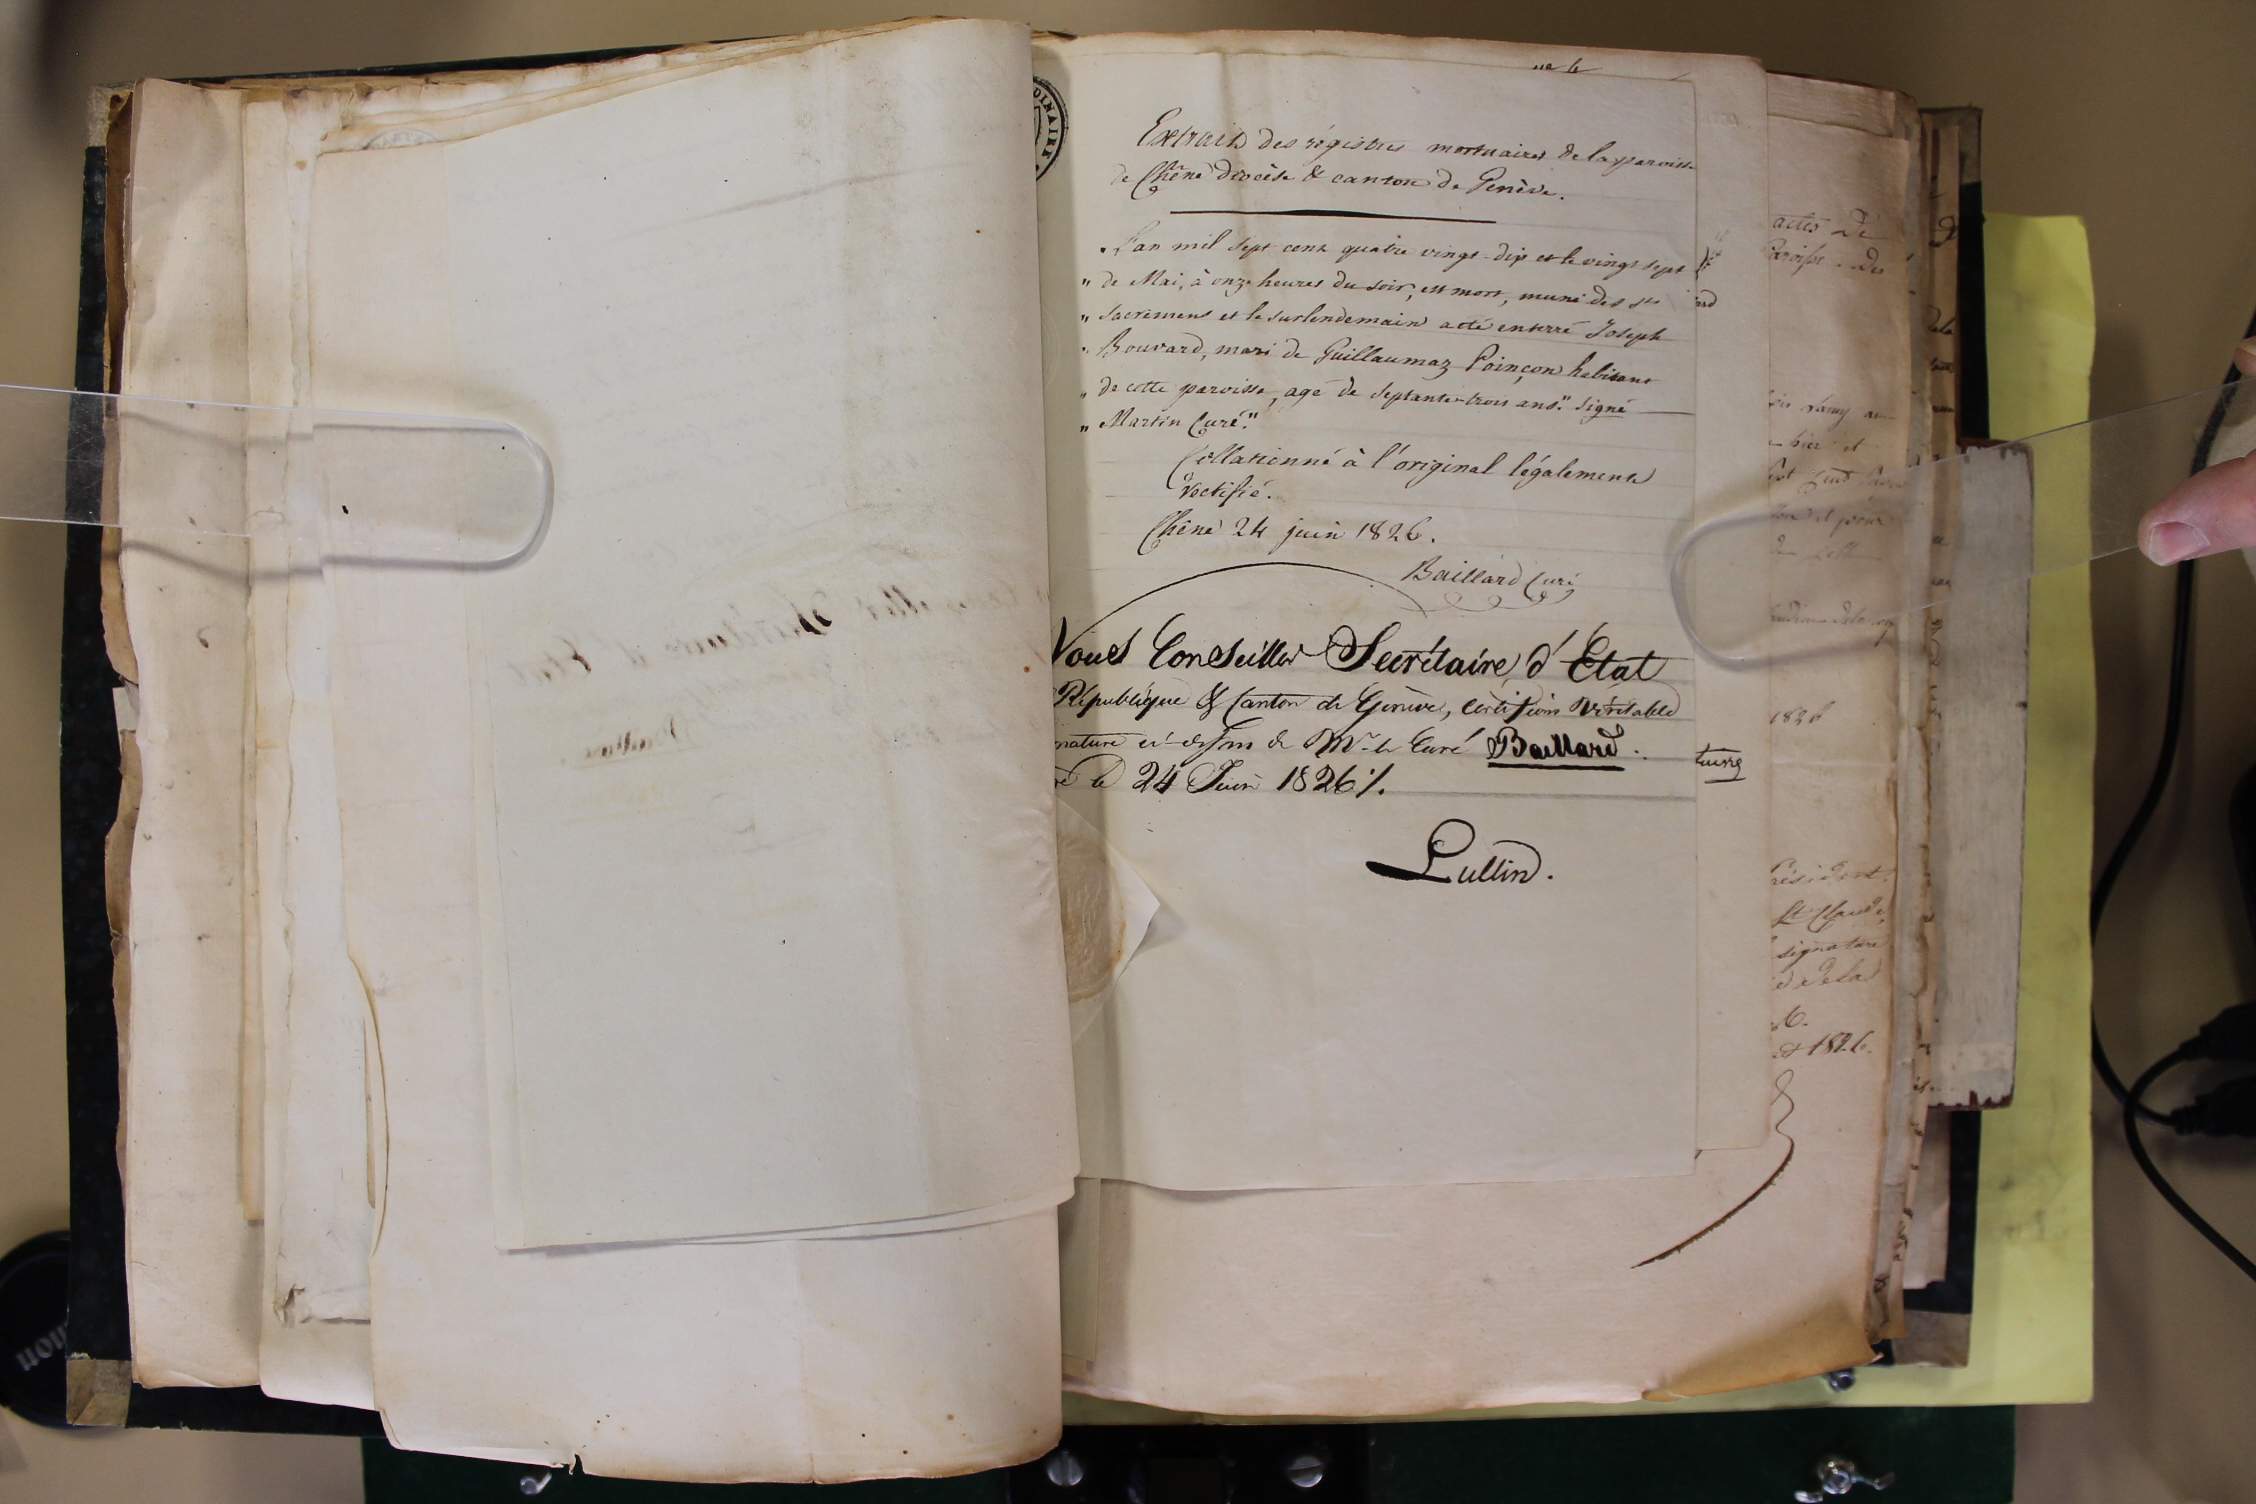 Extrait des régistres mortuaires de la paroisse
de Chêne diocèse & canton de Genève.
" L'an mil sept cent quatre vingt-dix et le vingt sept
" de Mai, à onze heures du soir, est mort, muni des sts
" sacremens et le surlendemain a été enterré Joseph
" Bouvard, mari de Guillaumaz Poinçon habitant
" de cette paroisse, agé de septante-trois ans." signé
" Martin Curé."
Collationné à l'original légalement
rectifié.
Chêne 24 juin 1826.
Baillard Curé
Nous Conseiller Secrétaire d'Etat
République & Canton de Genève, certifions véritable
nature ci-dessus de Mr. le Curé Baillard.
le 24 Juin 1826 /.
Lullin.
actes de
Paroisse des
hier et
1826
Président
St Claude,
signature
de la
1826.